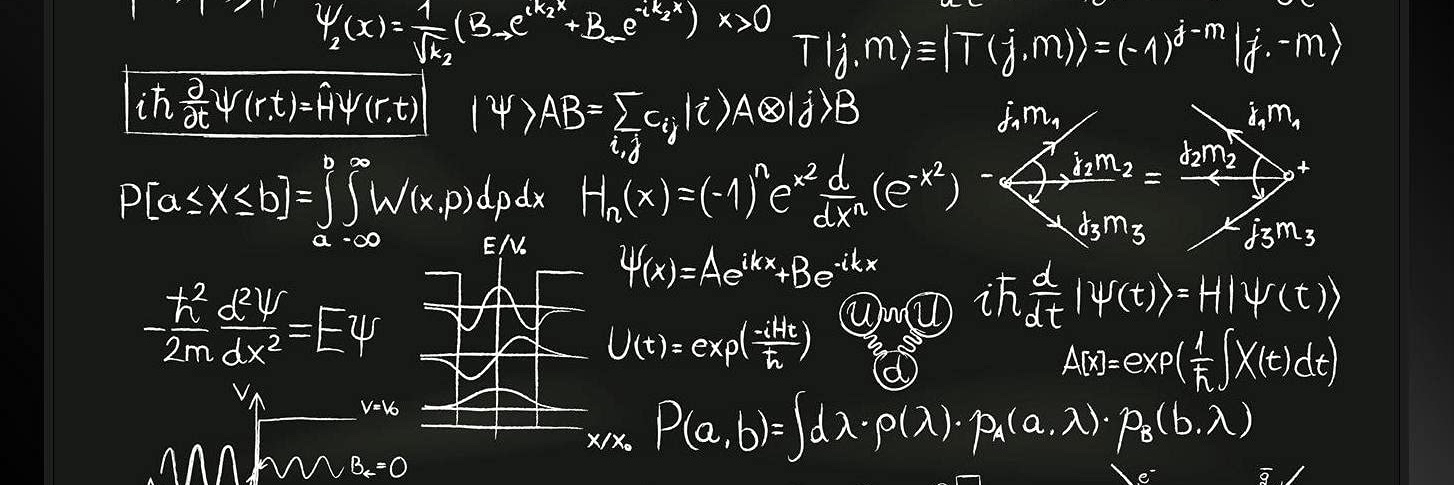 Ψ₂(x)=1/√k₂(B→e^{ik₂x}+B←e^{-ik₂x}) x>0
T|j,m⟩≡|T(j,m)⟩=(-1)^{j-m}|j.-m⟩
iħ∂/∂tΨ(r,t)=ĤΨ(r,t)
|Ψ⟩AB=∑_{i,j}c_{ij}|i⟩A⊗|j⟩B
j₁m₁
j₂m₂
j₃m₃
-
=
j₁m₁
j₂m₂
j₃m₃
+
P[a≤X≤b]=∫_a^b∫_{-∞}^{∞}W(x,p)dpdx
H_n(x)=(-1)^n e^{x²} d/dx^n(e^{-x²})
E/V₀
X/X₀
Ψ(x)=Ae^{ikx}+Be^{-ikx}
-ħ²/2m d²Ψ/dx²=EΨ
U(t)=exp(-iHt/ħ)
u u
d
iħ d/dt|Ψ(t)⟩=H|Ψ(t)⟩
A[x]=exp(1/ħ∫X(t)dt)
P(a,b)=∫dλ·ρ(λ)·p_A(a,λ)·p_B(b,λ)
V
V=V₀
B←=0
e⁻